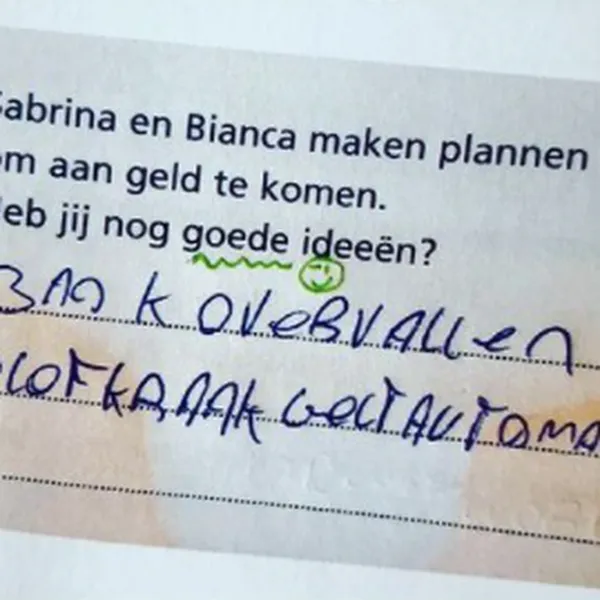 Sabrina en Bianca maken plannen
om aan geld te komen.
Heb jij nog goede ideeën?
BANK OVeBVALLen
PLOFKRAAK GeLTAUTOMA